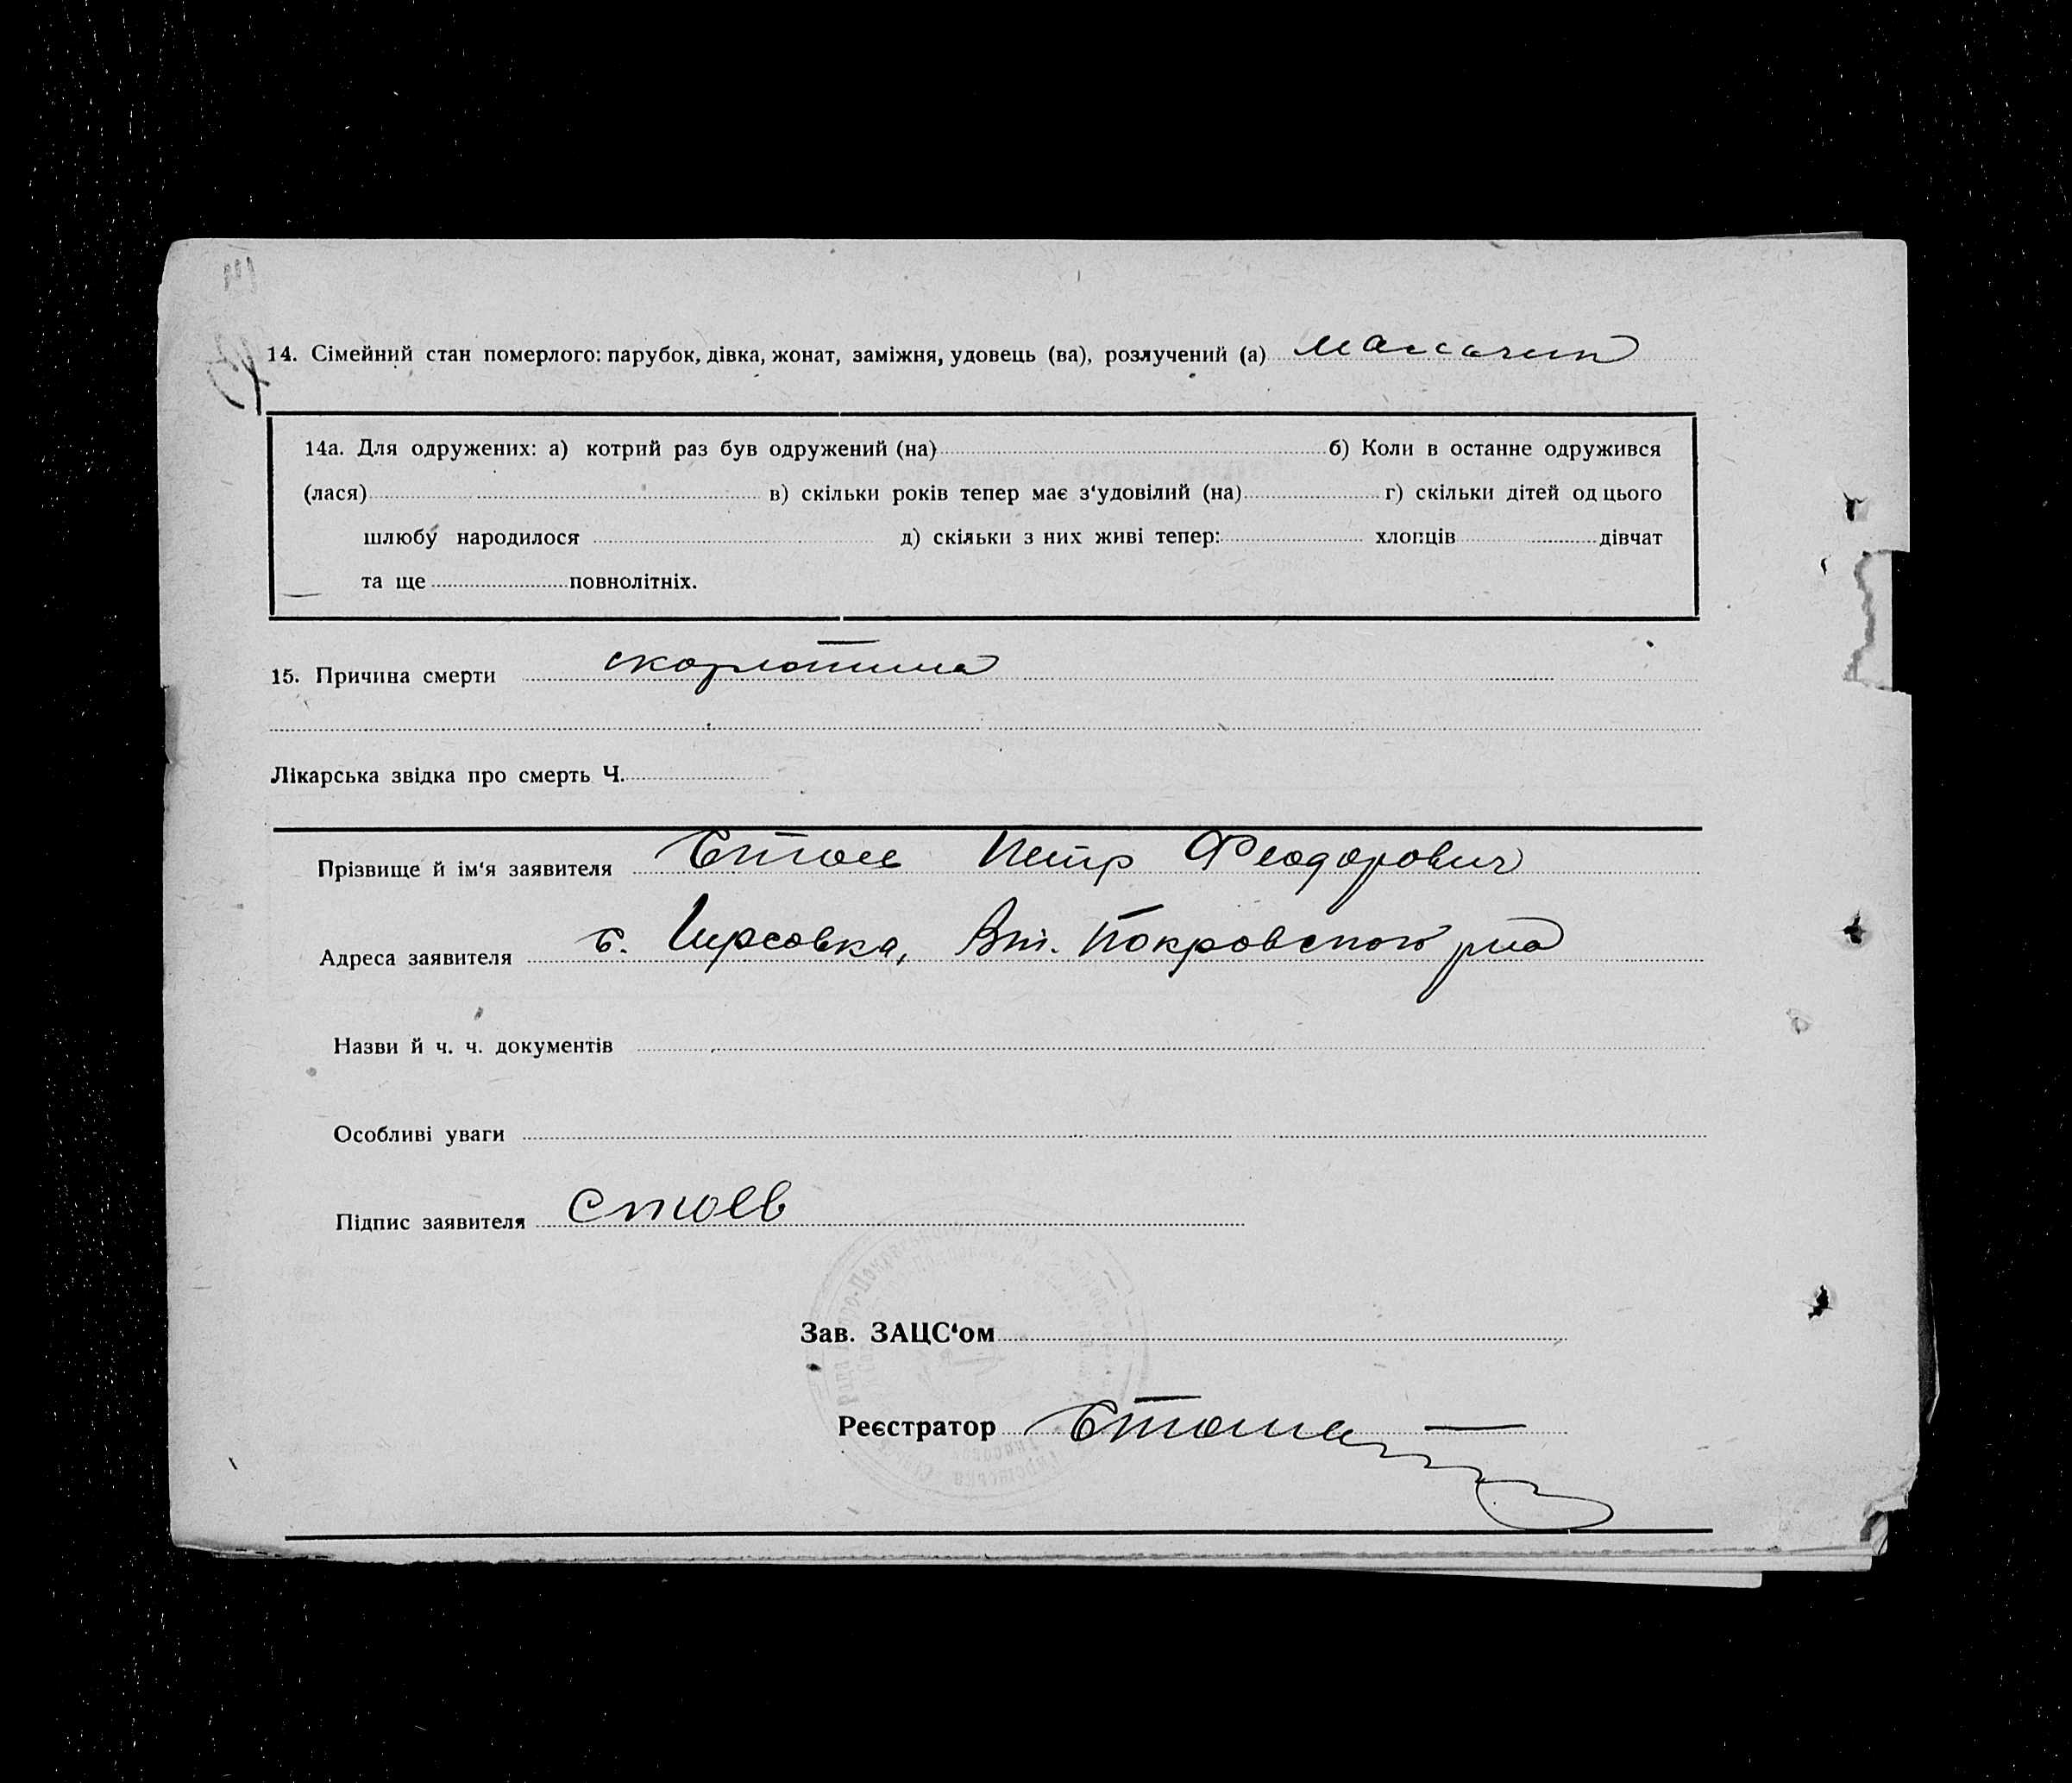 14. Сімейний стан померлого: парубок, дівка, жонат, заміжня, удовець (ва), розлучений (а)
14а. Для одружених: а) котрий раз був одружений (на) б) Коли в останнє одружився
(лася) в) скільки років тепер має з‘удовілий (на) г) скільки дітей од цього
шлюбу народилося д) скільки з них живі тепер: хлопців дівчат
та ще повнолітніх.
15. Причина смерти скорлотина
Лікарська звідка про смерть Ч.
Прізвище й ім‘я заявителя Стоев Петр Феодорович
Адреса заявителя с. Гирсовка, Покровского р-на
Назви й ч. ч. документів
Особливі уваги
Підпис заявителя Стоев
Зав. ЗАЦС‘ом
Реєстратор